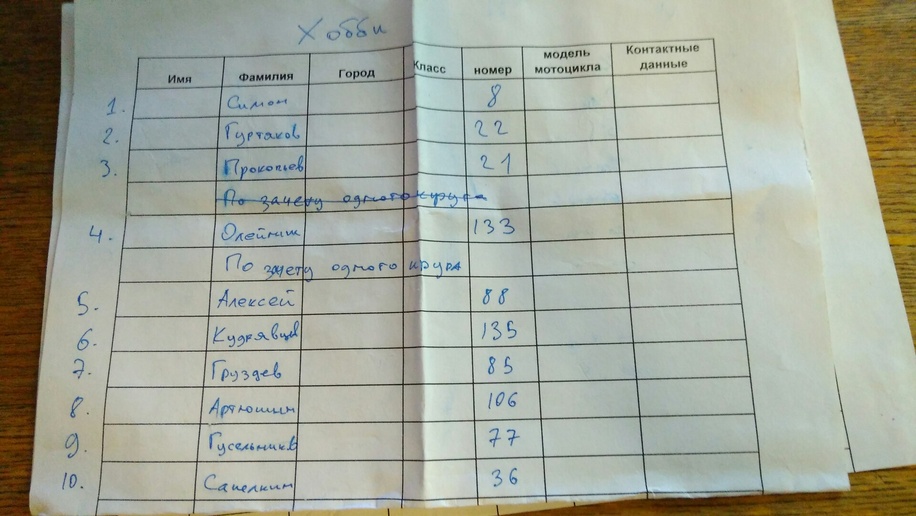 Хобби
Имя Фамилия Город Класс номер модель мотоцикла Контактные данные
1. Симон 8
2. Гуртаков 22
3. Прокопьев 21
По зачету одного круга
4. Олейник 133
По зачету одного круга
5. Алексей 88
6. Кудрявцев 135
7. Груздев 85
8. Артюшин 106
9. Гусельников 77
10. Сапелкин 36